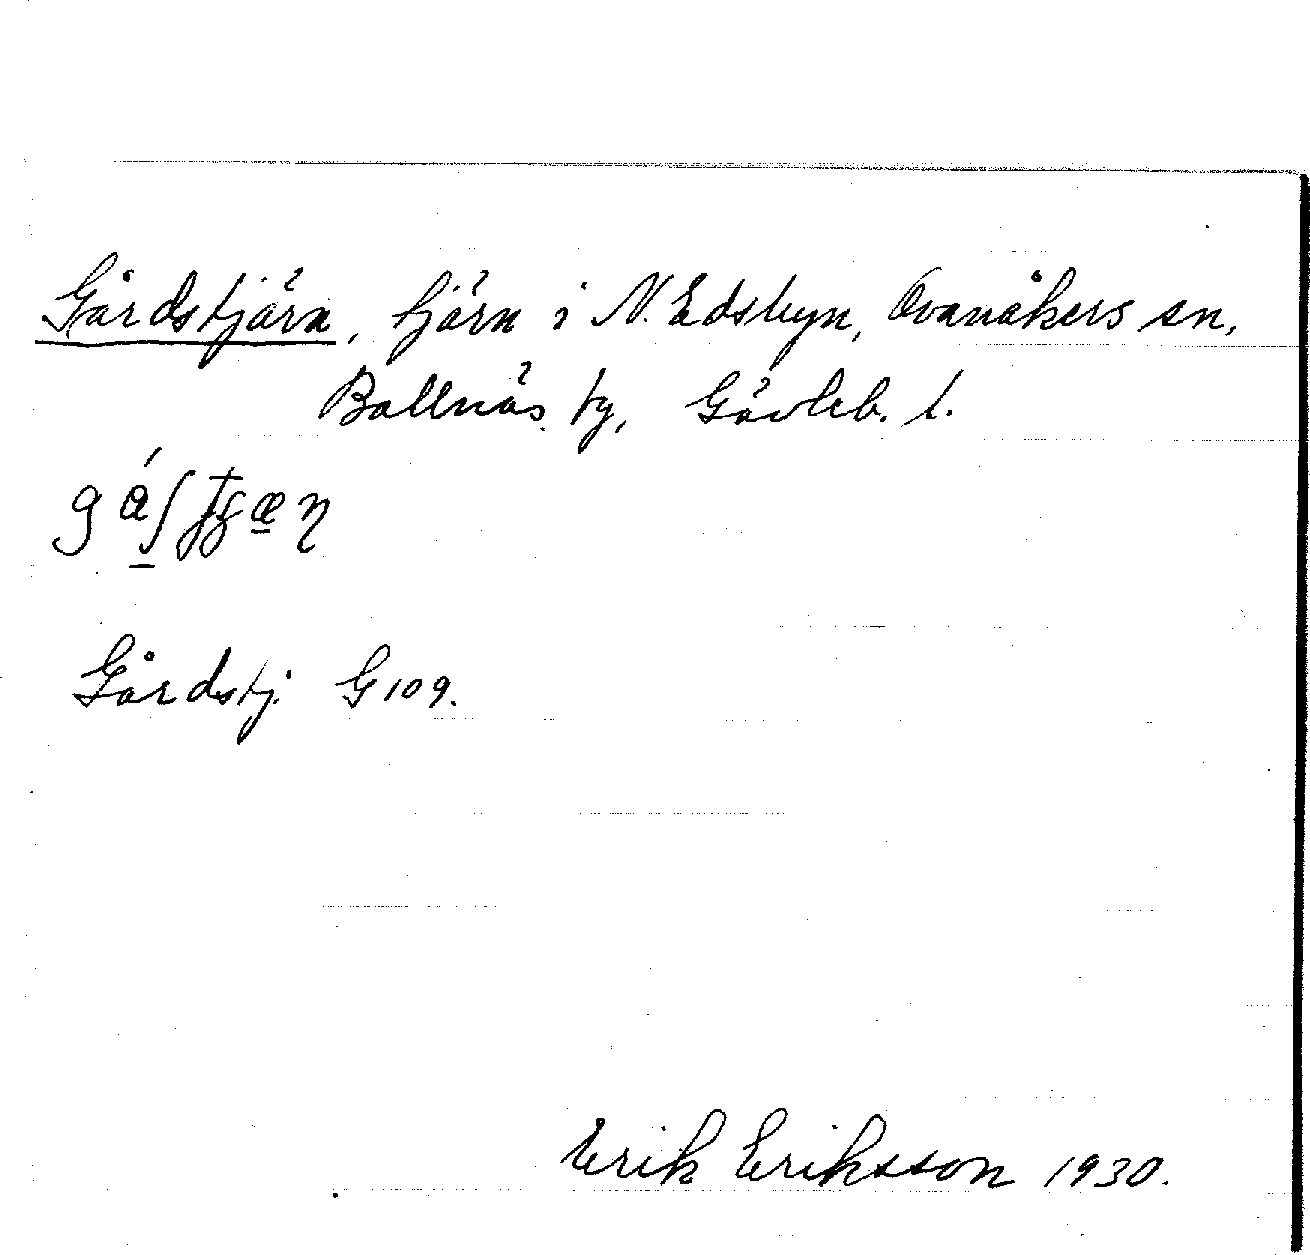 Gårdstjärn, tjärn i N. Edsbyn, Ovanåkers sn,
Bollnäs tg, Gävleb. l.
Gårdstj. G109.
Erik Eriksson 1930.